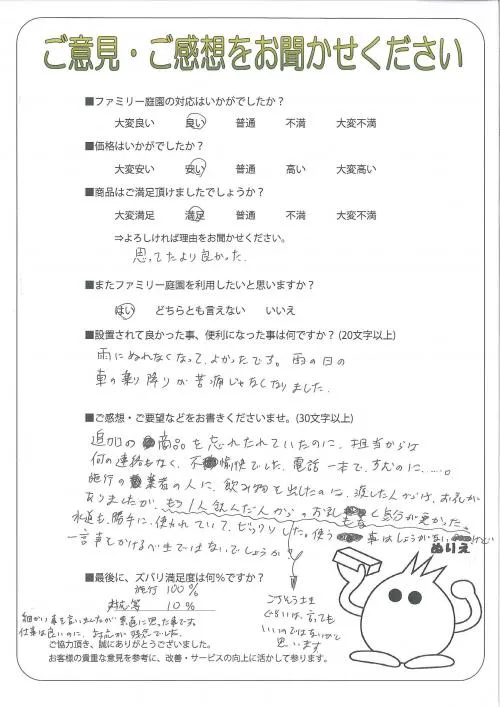 ご意見・ご感想をお聞かせください
■ファミリー庭園の対応はいかがでしたか？
大変良い 良い 普通 不満 大変不満
■価格はいかがでしたか？
大変安い 安い 普通 高い 大変高い
■商品はご満足頂けましたでしょうか？
大変満足 満足 普通 不満 大変不満
⇒よろしければ理由をお聞かせください。
思ってたより良かった.
■またファミリー庭園を利用したいと思いますか？
はい どちらとも言えない いいえ
■設置されて良かった事、便利になった事は何ですか？(20文字以上)
雨にぬれなくなって、よかったです。雨の日の
車の乗り降りが苦痛じゃなくなりました.
■ご感想・ご要望などをお書きくださいませ。(30文字以上)
追加の商品を忘れたれていたのに、担当からは
何の連絡もなく、不愉快でした、電話一本で、すむのに……。
施行の業者の人に、飲み物を出したのに、渡した人からは、お礼が
ありましたが、もう1人飲んだ人からのお礼もなく気分が悪かった。
水道も、勝手に、使われていて、ビックリした。使う事はしょうがないけど
一言声をかけるべきではないでしょうか
ぬりえ
■最後に、ズバリ満足度は何％ですか？
施行 100%
対応等 10%
ごちそう土生
ぐらいは、言っても
いいのではないかと
思います
細かい事を言いましたが素直に思った事です。
仕事は良いのに、対応が残念でした。
ご協力頂き、誠にありがとうございました。
お客様の貴重な意見を参考に、改善・サービスの向上に活かして参ります。